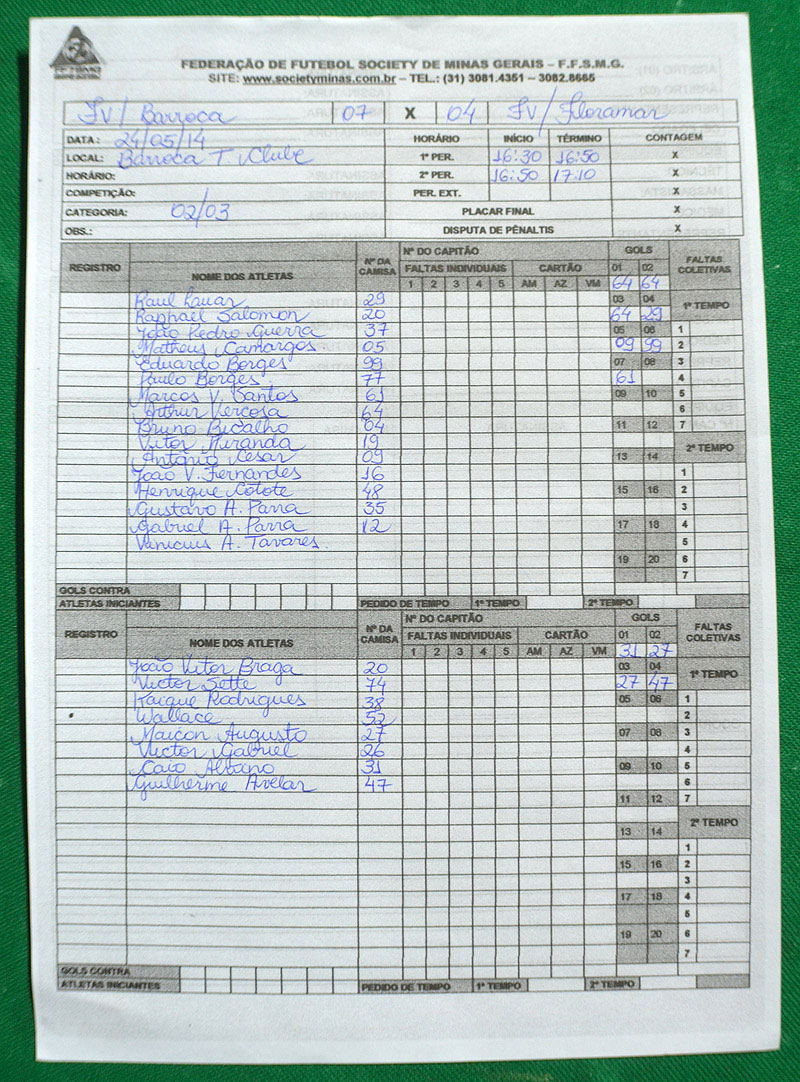 FEDERAÇÃO DE FUTEBOL SOCIETY DE MINAS GERAIS – F.F.S.M.G.
SITE: www.societyminas.com.br – TEL.: (31) 3081.4351 – 3082.8665
SV/ Barroca 07 X 04 SV/ Floramar
DATA: 24/05/14 HORÁRIO INÍCIO TÉRMINO CONTAGEM
LOCAL: Barroca T. Clube 1º PER. 16:30 16:50 X
HORÁRIO: 2º PER. 16:50 17:10 X
COMPETIÇÃO: PER. EXT. X
CATEGORIA: 02/03 PLACAR FINAL X
OBS.: DISPUTA DE PÊNALTIS X
REGISTRO NOME DOS ATLETAS Nº DA CAMISA Nº DO CAPITÃO GOLS FALTAS COLETIVAS
FALTAS INDIVIDUAIS CARTÃO 01 02
1 2 3 4 5 AM AZ VM 64 64
Raul Lauar 29 03 04 1º TEMPO
Raphael Salomon 20 64 29
João Pedro Guerra 37 05 06 1
Matheus Camargos 05 09 99 2
Eduardo Borges 99 07 08 3
Paulo Borges 77 61 4
Marcos V. Santos 61 09 10 5
Arthur Vercosa 64 6
Bruno Bicalho 04 11 12 7
Vitor Miranda 19 2º TEMPO
Antônio Cesar 09 13 14
João V. Fernandes 16 1
Henrique Cotote 48 15 16 2
Gustavo A. Parra 35 3
Gabriel A. Parra 12 17 18 4
Vinicius A. Tavares. 5
19 20 6
7
GOLS CONTRA
ATLETAS INICIANTES PEDIDO DE TEMPO 1º TEMPO 2º TEMPO
REGISTRO NOME DOS ATLETAS Nº DA CAMISA Nº DO CAPITÃO GOLS FALTAS COLETIVAS
FALTAS INDIVIDUAIS CARTÃO 01 02
1 2 3 4 5 AM AZ VM 31 27
João Vitor Braga 20 03 04 1º TEMPO
Victor Sette 74 27 47
Kaique Rodrigues 38 05 06 1
Wallace 52 2
Maicon Augusto 27 07 08 3
Victor Gabriel 26 4
Caio Albano 31 09 10 5
Guilherme Avelar 47 6
11 12 7
2º TEMPO
13 14
1
15 16 2
3
17 18 4
5
19 20 6
7
GOLS CONTRA
ATLETAS INICIANTES PEDIDO DE TEMPO 1º TEMPO 2º TEMPO